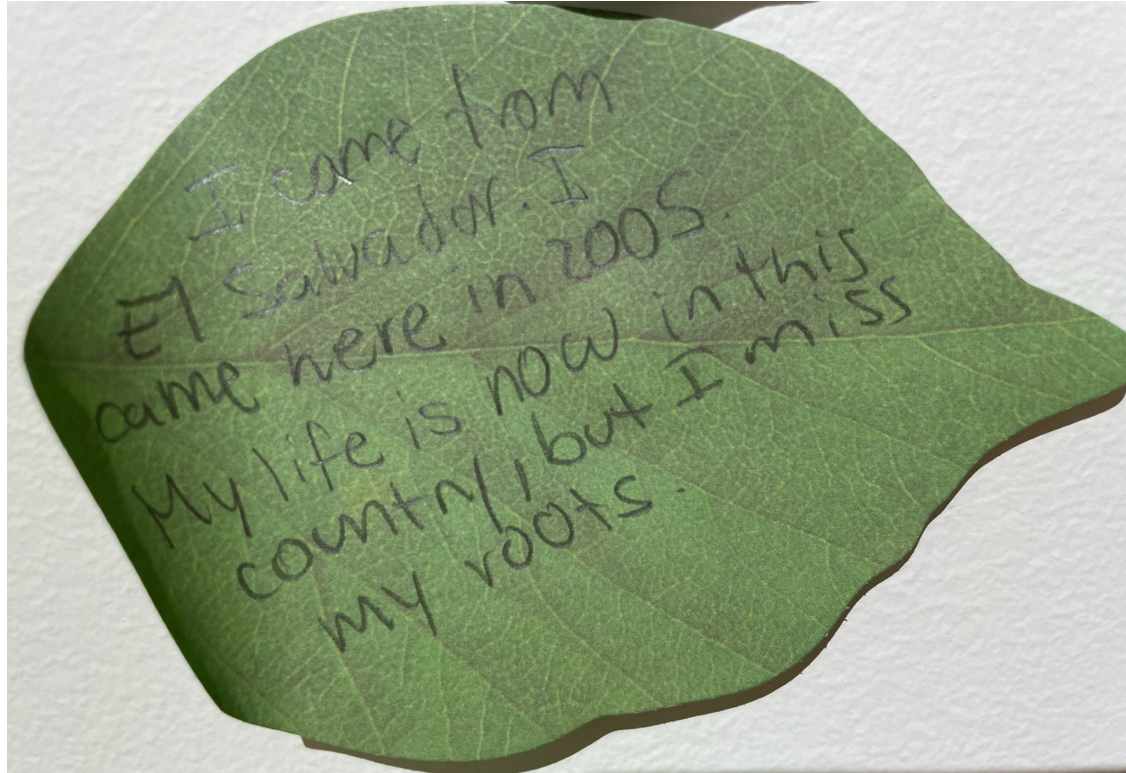 I came from
El Salvador. I
came here in 2005.
My life is now in this
country, but I miss
my roots.